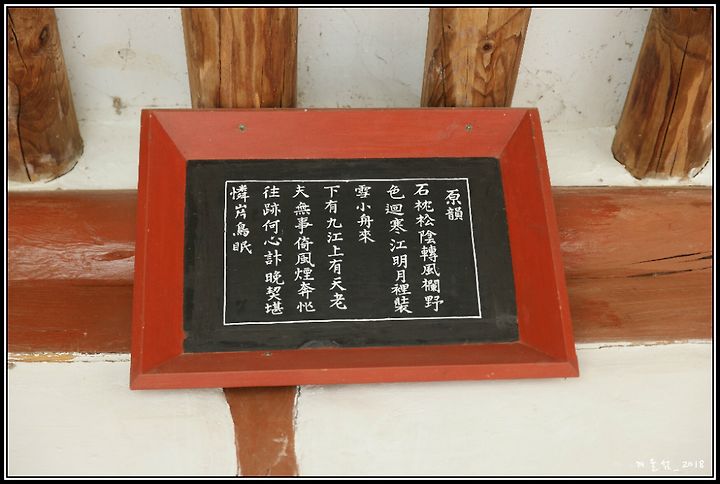 原韻
石枕松陰轉風欄野
色迴寒江明月裡裝
雪小舟來
下有九江上有天老
夫無事倚風煙奔忙
往跡何心計晩契堪
憐岸鳥眠
_2018